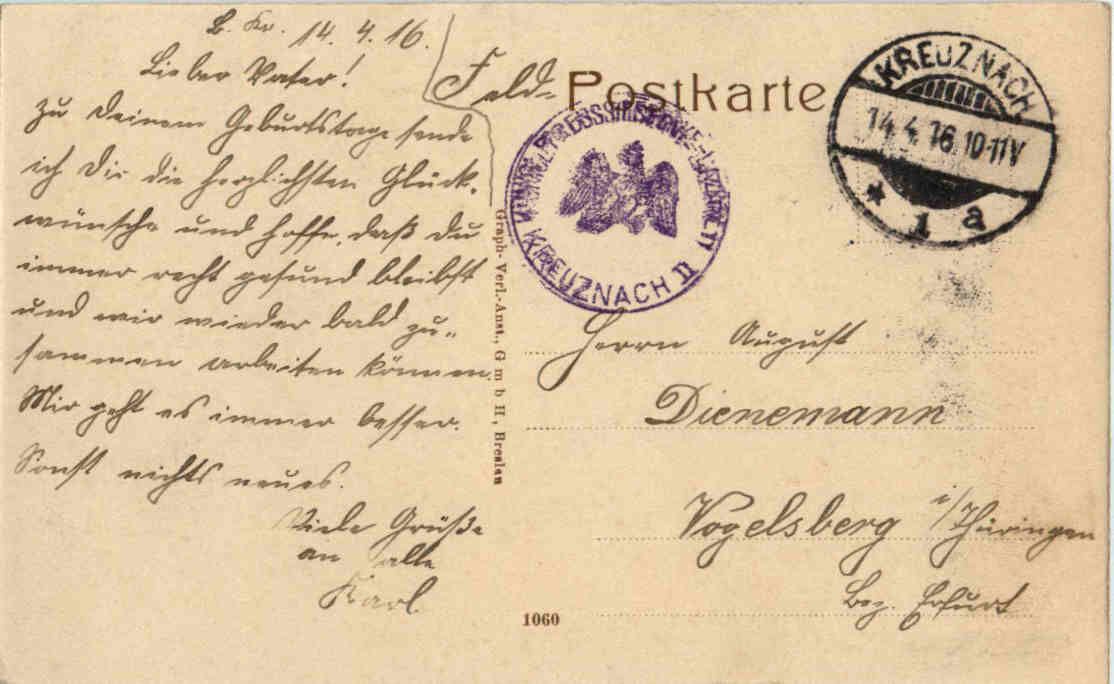 B. Kr. 14. 4. 16.
Lieber Vater!
zu Deinem Geburtstage sende
ich Dir die herzlichsten Glück-
wünsche und hoffe, daß Du
immer recht gesund bleibst
und wir wieder bald zu-
sammen arbeiten können.
Mir geht es immer besser.
Sonst nichts neues.
Viele Grüße
an alle
Karl.
Feld-Postkarte
KREUZNACH
14.4.16.10-11V
* 1 a
KREUZNACH II
Graph. Verl.-Anst., G m b H, Breslau
Herrn August
Dienemann
Vogelsberg i/Thüringen
Bez. Erfurt
1060